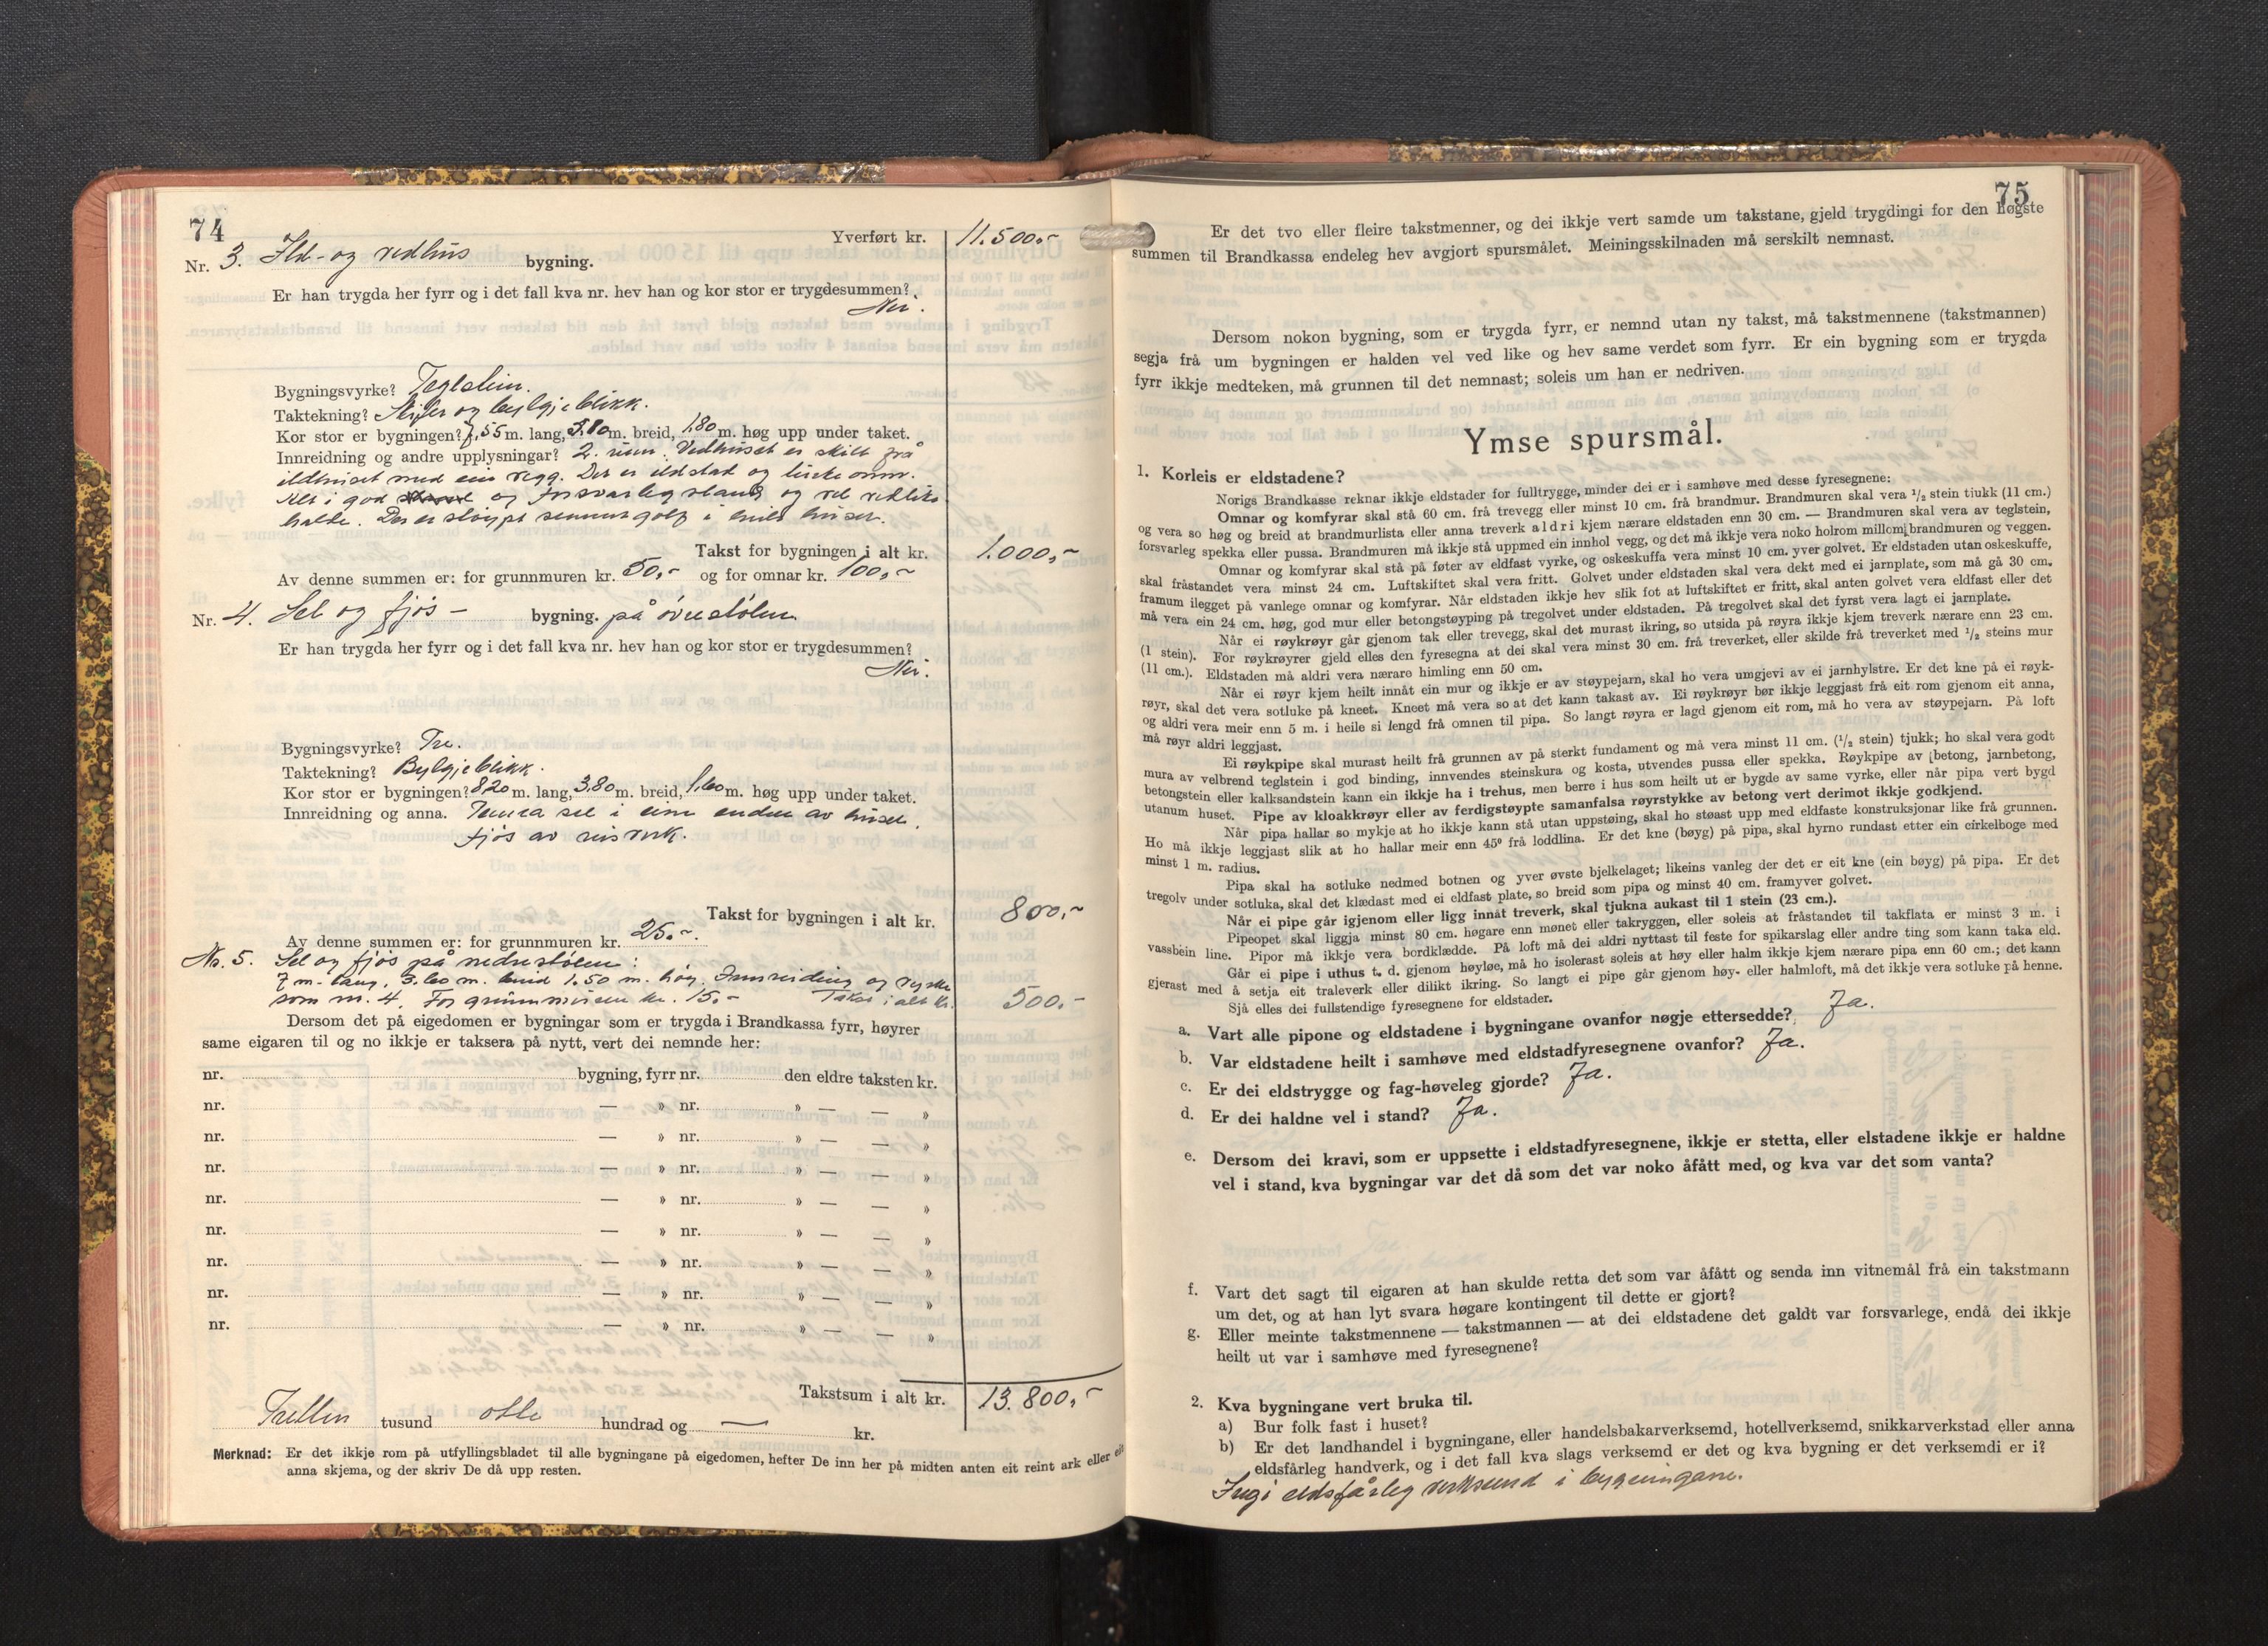 74
Yverført kr. 11.500,-
Nr. 3. Ild- og vedhus bygning.
Er han trygda her fyrr og i det fall kva nr. hev han og kor stor er trygdesummen?
Nei.
Bygningsvyrke? Teglstein.
Taktekning? Skifer og bylgjeblikk.
Kor stor er bygningen? 7,55 m. lang, 3,80 m. breid, 1,80 m. høg upp under taket.
Innreidning og andre upplysningar? 2 rum. Vedhuset er skilt frå
ildhuset med ein vegg. Der er eldstad og liten omn.
Alt i god og forsvarleg stand og vel vedlike
halde. Der er støypt sementgolv i heile huset.
Takst for bygningen i alt kr. 1.000,-
Av denne summen er: for grunnmuren kr. 50,- og for omnar kr. 100,-
Nr. 4. Sel og fjøs - bygning. på øvrestølen
Er han trygda her fyrr og i det fall kva nr. hev han og kor stor er trygdesummen?
Nei.
Bygningsvyrke? Tre.
Taktekning? Bylgjeblikk.
Kor stor er bygningen? 8,20 m. lang, 3,80 m. breid, 1,60 m. høg upp under taket.
Innreidning og anna. Tømra sel i eine enden av huset.
fjøs av reisverk.
Takst for bygningen i alt kr. 800,-
Av denne summen er: for grunnmuren kr. 25,-.
Nr. 5. Sel og fjøs på nedrestølen:
7 m. lang, 3.60 m. breid 1.50 m. høg. Innreiding og vyrke
som nr. 4. For grunnmuren kr. 15,- Takst i alt kr. 500,-
Dersom det på eigedomen er bygningar som er trygda i Brandkassa fyrr, høyrer
same eigaren til og no ikkje er taksera på nytt, vert dei nemnde her:
nr. bygning, fyrr nr. den eldre taksten kr.
nr. — » nr. » — — »
nr. — » nr. » — — »
nr. — » nr. » — — »
nr. — » nr. » — — »
nr. — » nr. » — — »
nr. — » nr. » — — »
nr. — » nr. » — — »
nr. — » nr. » — — »
Takstsum i alt kr. 13.800,-
Trettin tusund otte hundrad og — kr.
Merknad: Er det ikkje rom på utfyllingsbladet til alle bygningane på eigedomen, hefter De inn her på midten anten eit reint ark eller eit
anna skjema, og der skriv De då upp resten.
75
Er det tvo eller fleire takstmenner, og dei ikkje vert samde um takstane, gjeld trygdingi for den høgste
summen til Brandkassa endeleg hev avgjort spursmålet. Meiningsskilnaden må serskilt nemnast.
Dersom nokon bygning, som er trygda fyrr, er nemnd utan ny takst, må takstmennene (takstmannen)
segja frå um bygningen er halden vel ved like og hev same verdet som fyrr. Er ein bygning som er trygda
fyrr ikkje medteken, må grunnen til det nemnast; soleis um han er nedriven.
Ymse spursmål.
1. Korleis er eldstadene?
Norigs Brandkasse reknar ikkje eldstader for fulltrygge, minder dei er i samhøve med desse fyresegnene:
Omnar og komfyrar skal stå 60 cm. frå trevegg eller minst 10 cm. frå brandmur. Brandmuren skal vera 1/2 stein tiukk (11 cm.)
og vera so høg og breid at brandmurlista eller anna treverk aldri kjem nærare eldstaden enn 30 cm. — Brandmuren skal vera av teglstein,
forsvarleg spekka eller pussa. Brandmuren må ikkje stå uppmed ein innhol vegg, og det må ikkje vera noko holrom millom brandmuren og veggen.
Omnar og komfyrar skal stå på føter av eldfast vyrke, og oskeskuffa vera minst 10 cm. yver golvet. Er eldstaden utan oskeskuffe,
skal fråstandet vera minst 24 cm. Luftskiftet skal vera fritt. Golvet under eldstaden skal vera dekt med ei jarnplate, som må gå 30 cm.
framum ilegget på vanlege omnar og komfyrar. Når eldstaden ikkje hev slik fot at luftskiftet er fritt, skal anten golvet vera eldfast eller det
må vera ein 24 cm. høg, god mur eller betongstøyping på tregolvet under eldstaden. På tregolvet skal det fyrst vera lagt ei jarnplate.
Når ei røykrøyr går gjenom tak eller trevegg, skal det murast ikring, so utsida på røyra ikkje kjem treverk nærare enn 23 cm.
(1 stein). For røykrøyrer gjeld elles den fyresegna at dei skal vera minst 30 cm. frå treverket, eller skilde frå treverket med 1/2 steins mur
(11 cm.). Eldstaden må aldri vera nærare himling enn 50 cm.
Når ei røyr kjem heilt innåt ein mur og ikkje er av støypejarn, skal ho vera umgjevi av ei jarnhylstre. Er det kne på ei røyk-
røyr, skal det vera sotluke på kneet. Kneet må vera so at det kann takast av. Ei røykrøyr bør ikkje leggjast frå eit rom gjenom eit anna,
og aldri vera meir enn 5 m. i heile si lengd frå omnen til pipa. So langt røyra er lagd gjenom eit rom, må ho vera av støypejarn. På loft
må røyr aldri leggjast.
Ei røykpipe skal murast heilt frå grunnen av på sterkt fundament og må vera minst 11 cm. (1/2 stein) tjukk; ho skal vera godt
mura av velbrend teglstein i god binding, innvendes steinskura og kosta, utvendes pussa eller spekka. Røykpipe av betong, jarnbetong,
betongstein eller kalksandstein kann ein ikkje ha i trehus, men berre i hus som heilt ut er bygde av same vyrke, eller når pipa vert bygd
utanum huset. Pipe av kloakkrøyr eller av ferdigstøypte samanfalsa røyrstykke av betong vert derimot ikkje godkjend.
Når pipa hallar so mykje at ho ikkje kann stå utan uppstøing, skal ho støast upp med eldfaste konstruksjonar like frå grunnen.
Ho må ikkje leggjast slik at ho hallar meir enn 45° frå loddlina. Er det kne (bøyg) på pipa, skal hyrno rundast etter ein cirkelboge med
minst 1 m. radius.
Pipa skal ha sotluke nedmed botnen og yver øvste bjelkelaget; likeins vanleg der det er eit kne (ein bøyg) på pipa. Er det
tregolv under sotluka, skal det klædast med ei eldfast plate, so breid som pipa og minst 40 cm. framyver golvet.
Når ei pipe går igjenom eller ligg innåt treverk, skal tjukna aukast til 1 stein (23 cm.).
Pipeopet skal liggja minst 80 cm. høgare enn mønet eller takryggen, eller soleis at fråstandet til takflata er minst 3 m. i
vassbein line. Pipor må ikkje vera bordklædde. På loft må dei aldri nyttast til feste for spikarslag eller andre ting som kann taka eld.
Går ei pipe i uthus t. d. gjenom høyløe, må ho isolerast soleis at høy eller halm ikkje kjem nærare pipa enn 60 cm.; det kann
gjerast med å setja eit traleverk eller dilikt ikring. So langt ei pipe går gjenom høy- eller halmloft, må det ikkje vera sotluke på henne.
Sjå elles dei fullstendige fyresegnene for eldstader.
a. Vart alle pipone og eldstadene i bygningane ovanfor nøgje ettersedde? Ja.
b. Var eldstadene heilt i samhøve med eldstadfyresegnene ovanfor? Ja.
c. Er dei eldstrygge og fag-høveleg gjorde? Ja.
d. Er dei haldne vel i stand? Ja.
e. Dersom dei kravi, som er uppsette i eldstadfyresegnene, ikkje er stetta, eller elstadene ikkje er haldne
vel i stand, kva bygningar var det då som det var noko åfått med, og kva var det som vanta?
f. Vart det sagt til eigaren at han skulde retta det som var åfått og senda inn vitnemål frå ein takstmann
um det, og at han lyt svara høgare kontingent til dette er gjort?
g. Eller meinte takstmennene — takstmannen — at dei eldstadene det galdt var forsvarlege, endå dei ikkje
heilt ut var i samhøve med fyresegnene?
2. Kva bygningane vert bruka til.
a) Bur folk fast i huset?
b) Er det landhandel i bygningane, eller handelsbakarverksemd, hotellverksemd, snikkarverkstad eller anna
eldsfårleg handverk, og i det fall kva slags verksemd er det og kva bygning er det verksemdi er i?
Ingi eldsfårleg verksemd i bygningane.